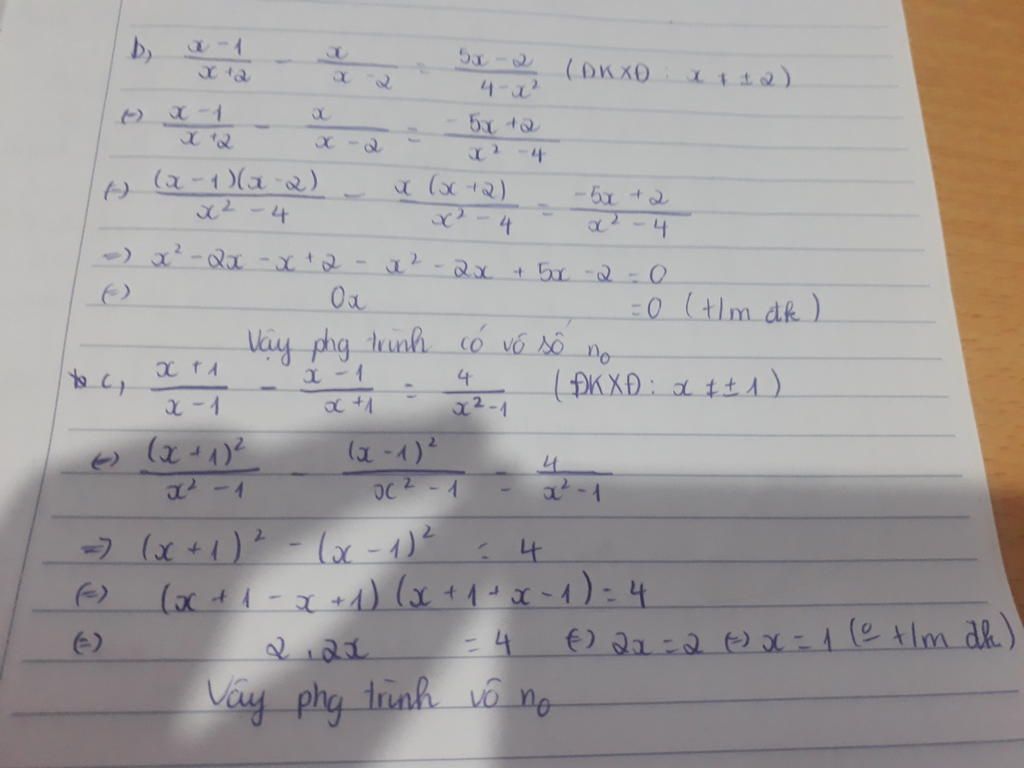 b, \frac{x-1}{x+2} - \frac{x}{x-2} = \frac{5x-2}{4-x²} (ĐKXĐ: x ≠ ±2)
(=) \frac{x-1}{x+2} - \frac{x}{x-2} = \frac{-5x+2}{x²-4}
(=) \frac{(x-1)(x-2)}{x²-4} - \frac{x(x+2)}{x²-4} = \frac{-5x+2}{x²-4}
=) x² - 2x - x + 2 - x² - 2x + 5x - 2 = 0
(=) 0x = 0 (t/m đk)
Vậy phg trình có vô số n₀
c, \frac{x+1}{x-1} - \frac{x-1}{x+1} = \frac{4}{x²-1} (ĐKXĐ: x ≠ ±1)
(=) \frac{(x+1)²}{x²-1} - \frac{(x-1)²}{x²-1} = \frac{4}{x²-1}
=) (x+1)² - (x-1)² = 4
(=) (x+1-x+1)(x+1+x-1) = 4
(=) 2.2x = 4 (=) 2x = 2 (=) x = 1 (o t/m đk)
Vậy phg trình vô n₀